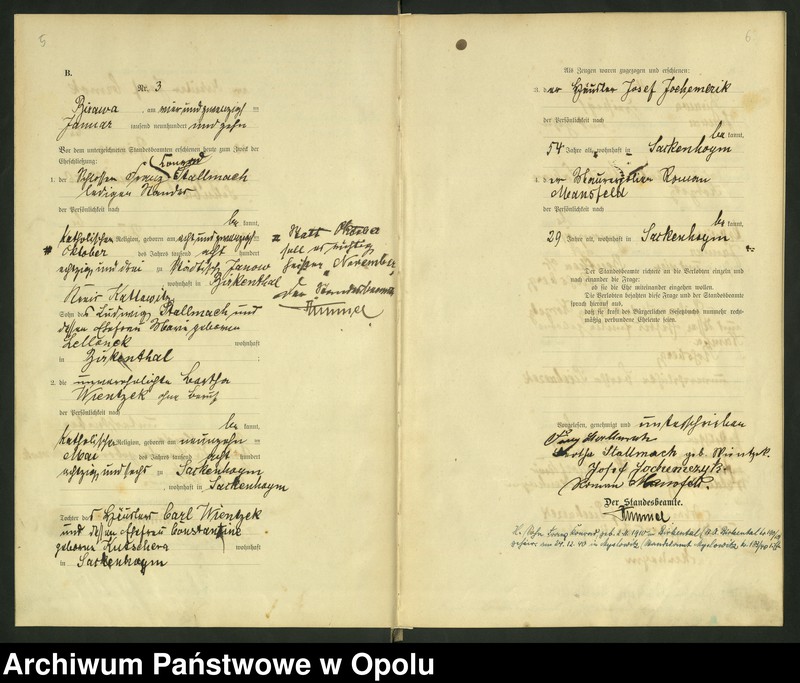 5
B.
Nr. 3
Birawa, am vier und zwanzigsten
Januar tausend neunhundert und zehn
Vor dem unterzeichneten Standesbeamten erschienen heute zum Zweck der
Eheschließung:
Konrad
1. der Schlosser Franz Stallmach
ledigen Standes
der Persönlichkeit nach
be kannt,
katholischer Religion, geboren am acht und zwanzigsten
Oktober des Jahres tausend acht hundert
achtzig und drei zu Städtisch Janow
wohnhaft in Birkenthal
Kreis Kattowitz
Sohn des Ludwig Stallmach und
dessen Ehefrau Marie geborene
wohnhaft
in Birkenthal
2. die unverehelichte Bertha
Wientzek ohne Beruf
der Persönlichkeit nach
be kannt,
katholischer Religion, geboren am neunzehnten
Mai des Jahres tausend acht hundert
achtzig und sechs zu Sackenhoym
, wohnhaft in Sackenhoym
Tochter des Häuslers Carl Wientzek
und dessen Ehefrau Constantine
geborene Kutschera wohnhaft
in Sackenhoym
Statt Oktober
soll es richtig
heißen November
Der Standesbeamte
Kummel
6
Als Zeugen waren zugezogen und erschienen:
3. der Häusler Josef Jochemczik
der Persönlichkeit nach
be kannt,
54 Jahre alt, wohnhaft in Sackenhoym
4. der Maurerpolier Roman
Mansfeld
der Persönlichkeit nach
be kannt,
29 Jahre alt, wohnhaft in Sackenhoym
Der Standesbeamte richtete an die Verlobten einzeln und
nach einander die Frage:
ob sie die Ehe miteinander eingehen wollen.
Die Verlobten bejahten diese Frage und der Standesbeamte
sprach hierauf aus,
daß sie kraft des Bürgerlichen Gesetzbuchs nunmehr recht-
mäßig verbundene Eheleute seien.
Vorgelesen, genehmigt und unterschrieben
Franz Stallmach
Bertha Stallmach geb. Wientzek.
Josef Jochemczyk
Roman Mansfeld.
Der Standesbeamte.
Kummel
Archiwum Państwowe w Opolu